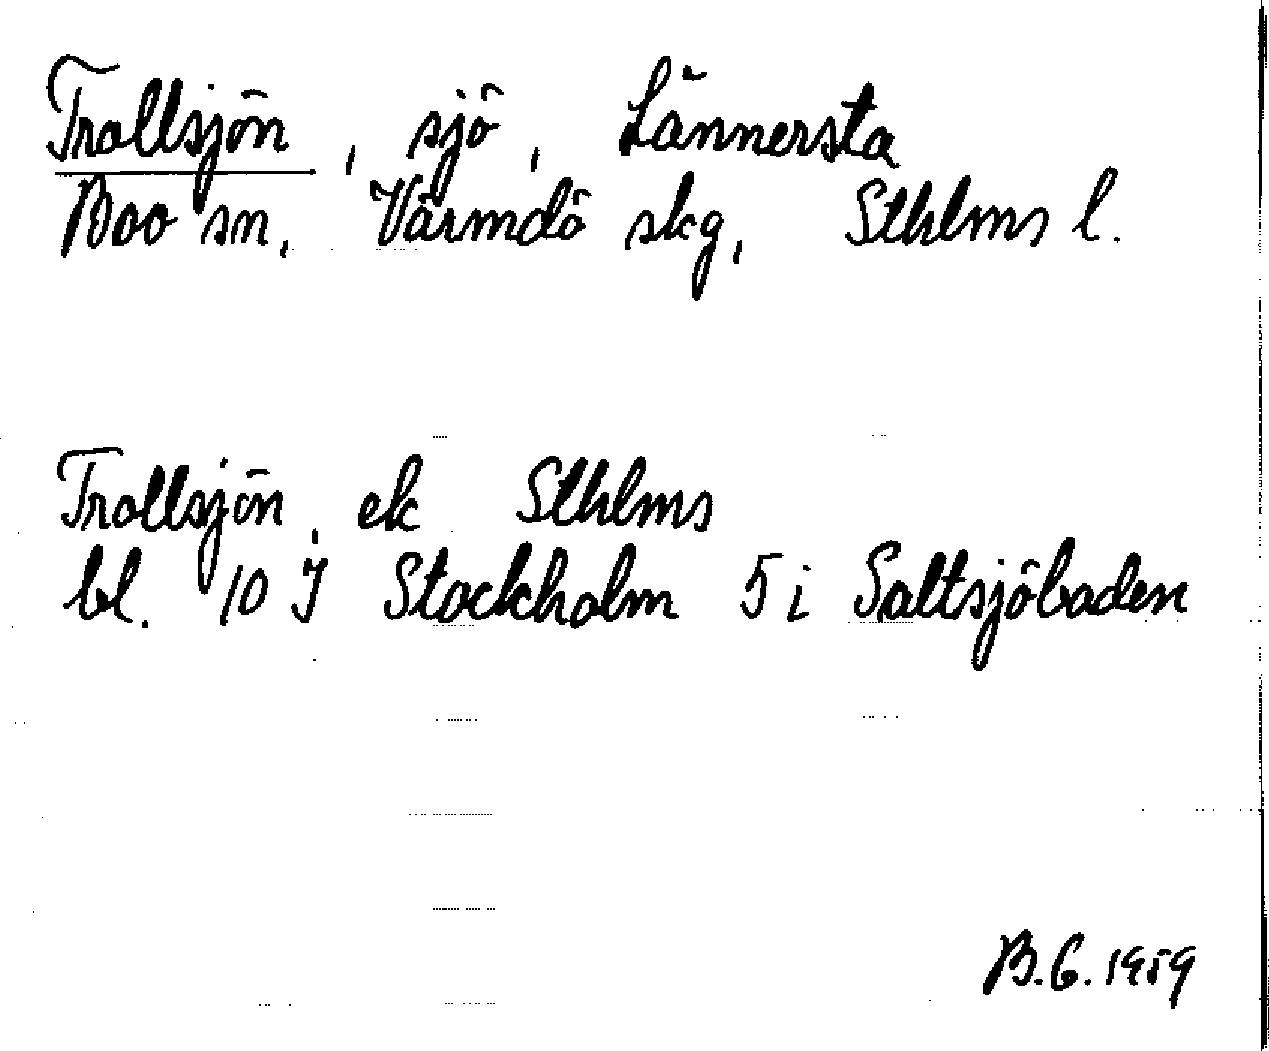 Trollsjön, sjö, Lännersta
Boo sn, Värmdö skg, Sthlms l.
Trollsjön, ek Sthlms
bl. 10 J Stockholm 5 i Saltsjöbaden
B.G. 1959